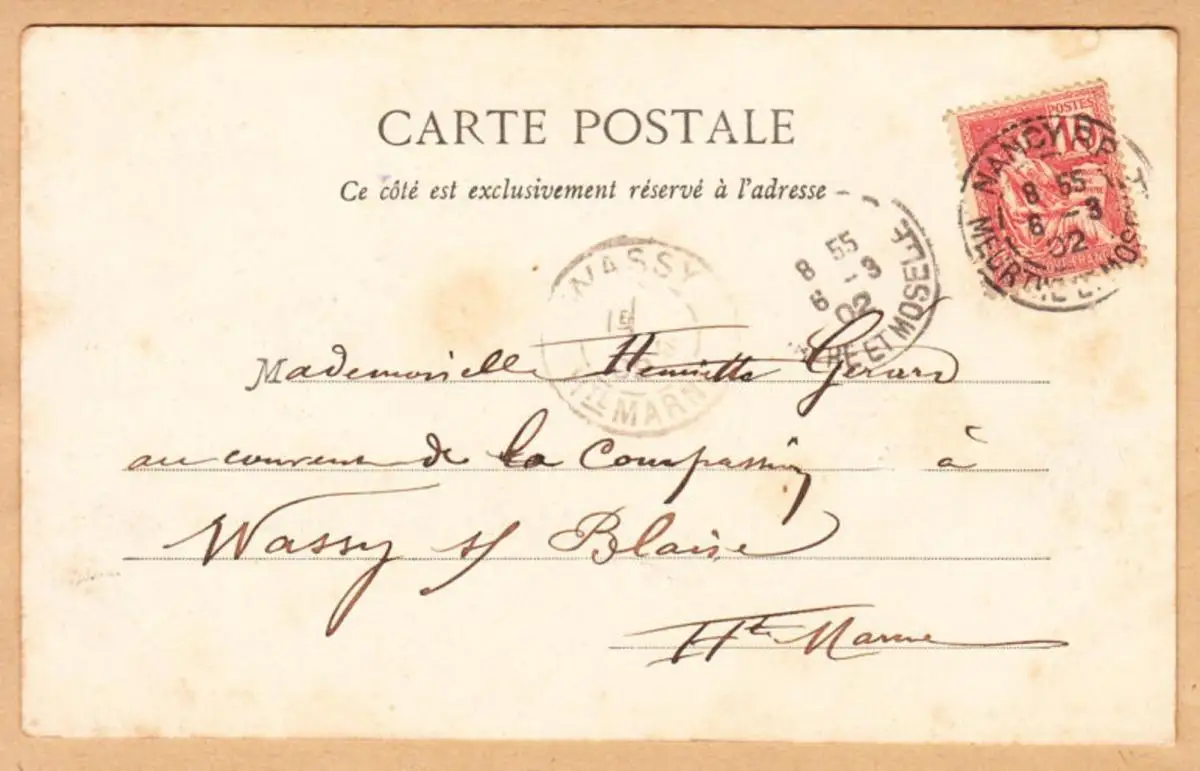 CARTE POSTALE
Ce côté est exclusivement réservé à l'adresse
POSTES
NANCY R.P.
8 55
6 -3
02
MEURTHE ET MOSELLE
8 55
6 -3
02
RE ET MOSELLE
WASSY
HTE MARNE
Mademoiselle Henriette Gérard
au couvent de la Compassion à
Wassy s/ Blaise
Hte Marne